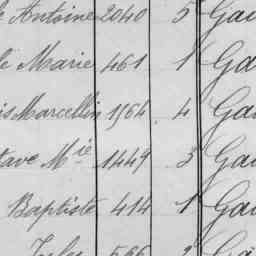 Antoine 2040 5 Gau
Marie 461 1 Ga
is Marcellin 1964 4 Gau
tave Mie 1449 3 Gau
Baptiste 414 1 Gau
Jules 566 2 Gau